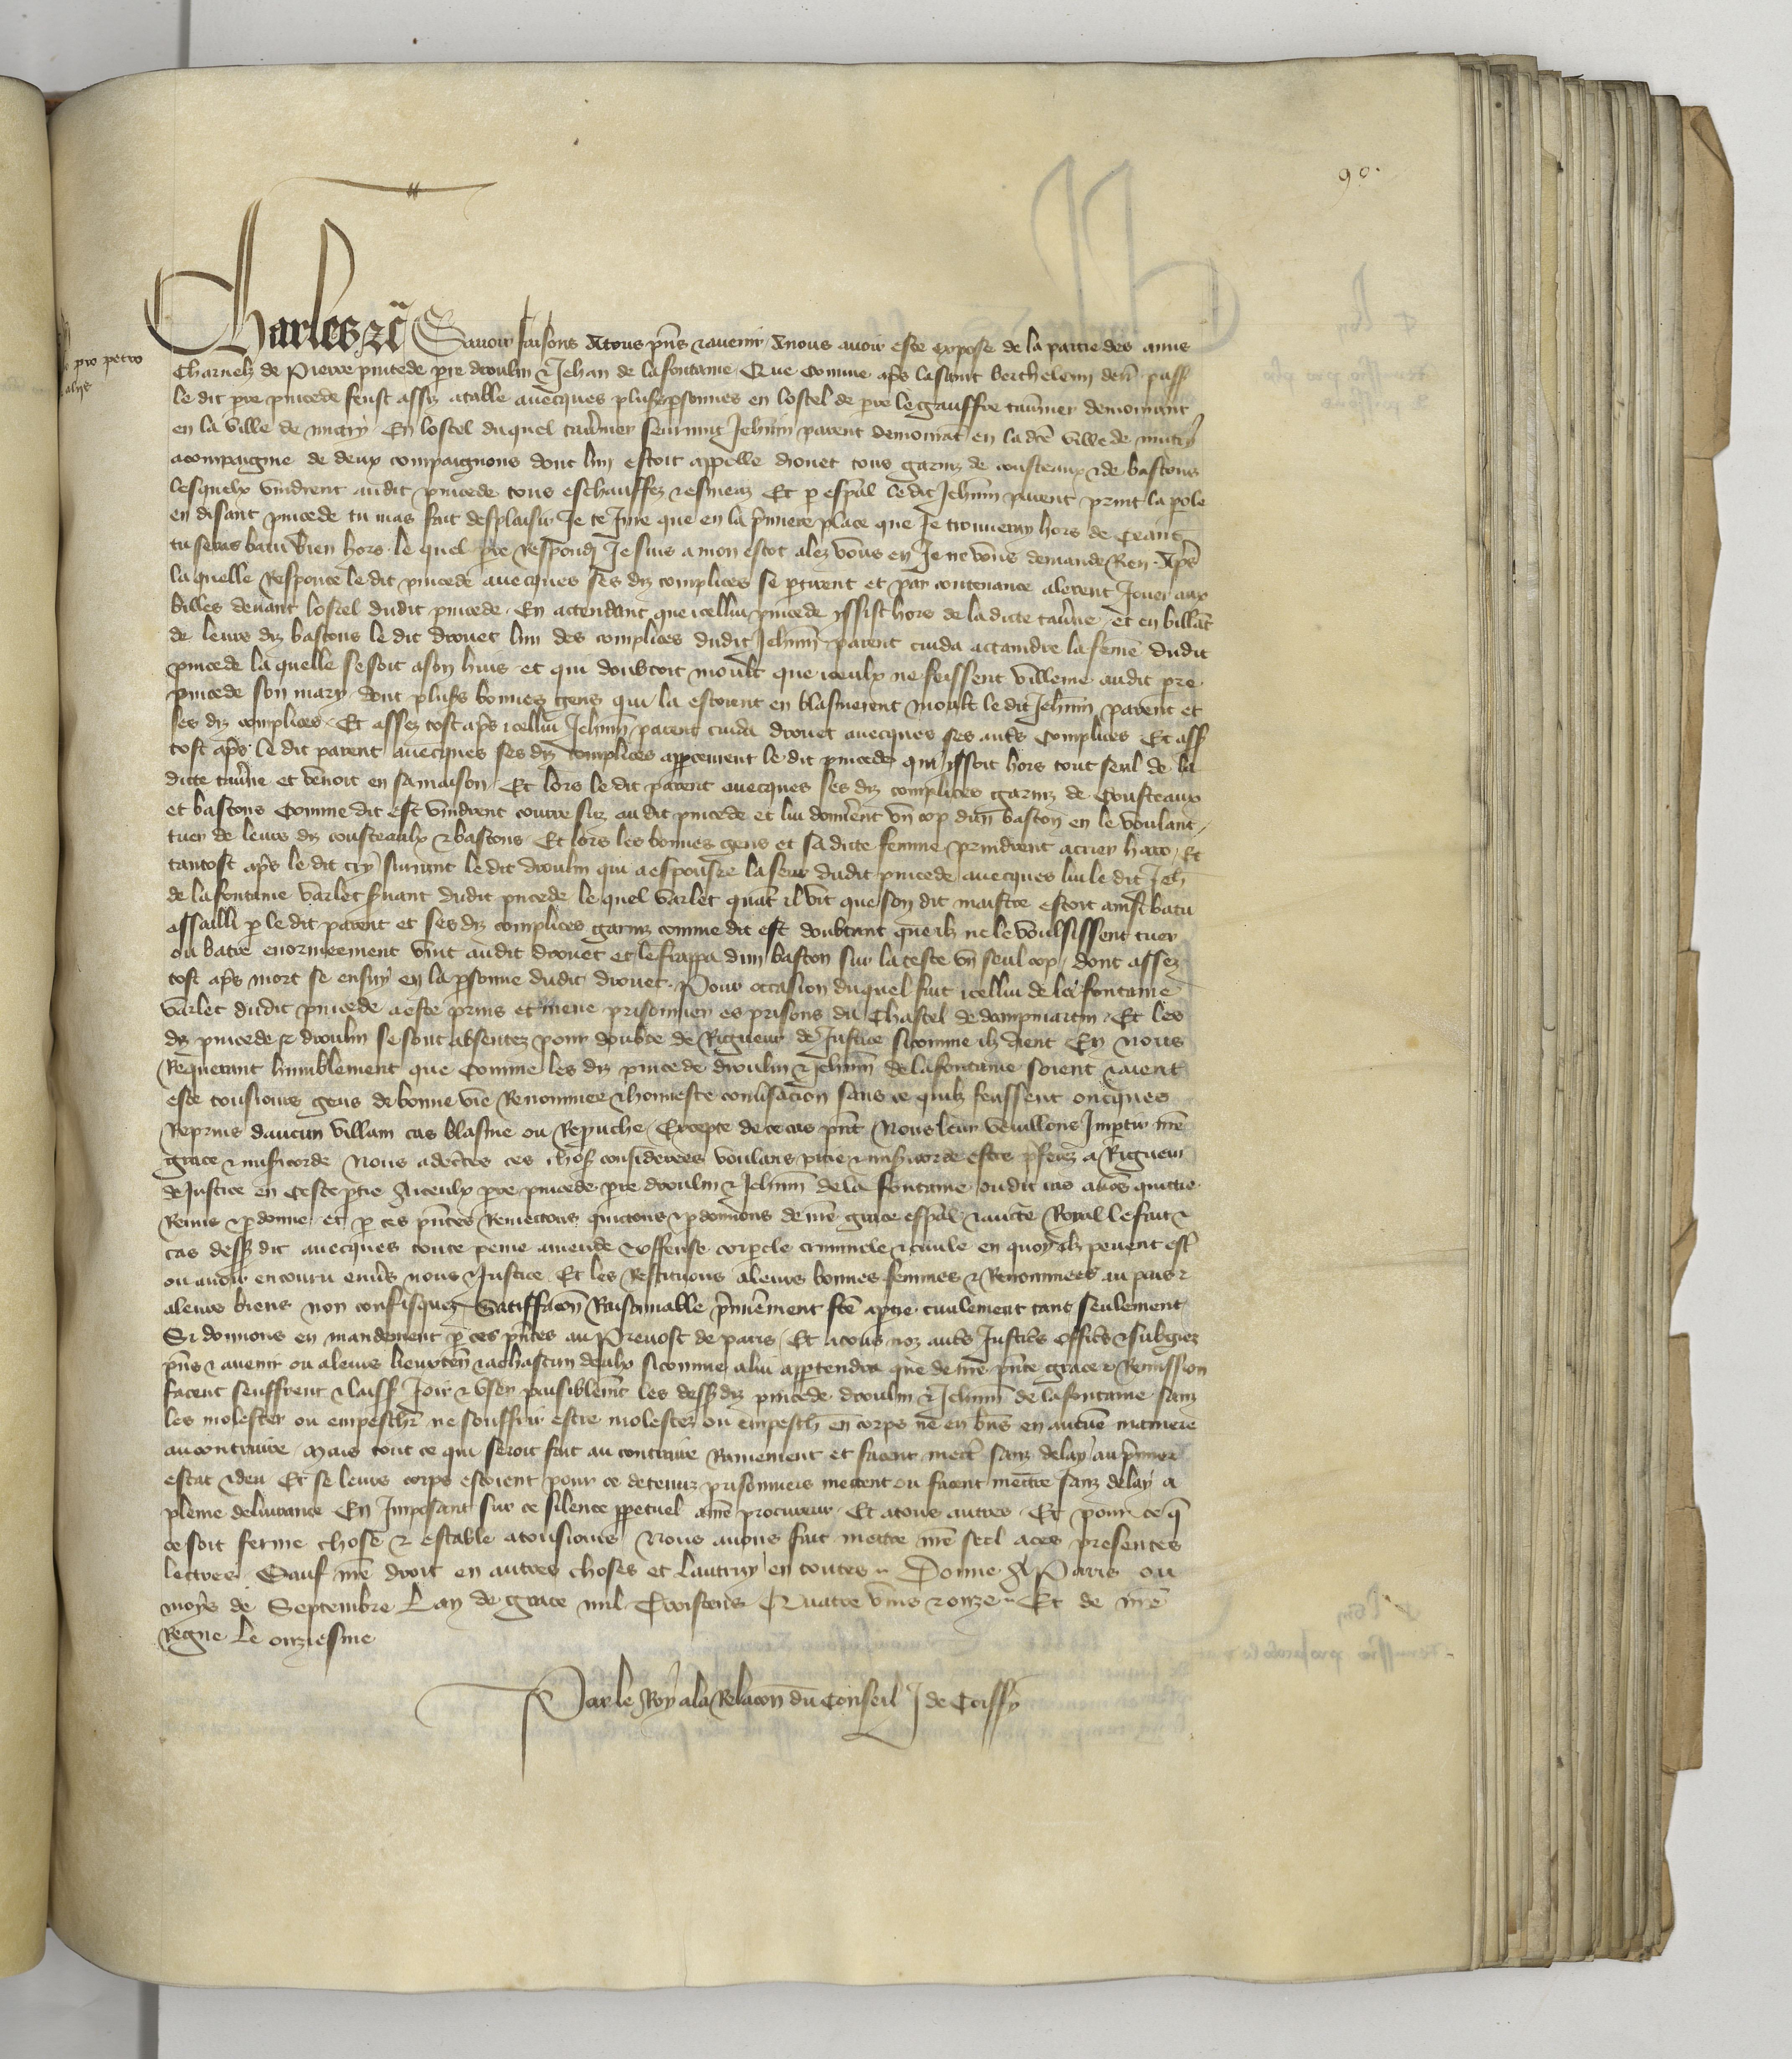 90.
pro petro
alijs
Charles etc Savoir faisons A tous pñs & avenir A nous avoir este expose de la partie des amis
Charnelz de Pierre pincede pre droulin & Jehan de lafontaine Que Comme aps la saint berthelemi derñ pass
le dit pre pincede feust assiz atable avecques plusrs personnes en lostel de pre le gauffre tavnier demourant
en la ville de mitry En lostel duquel tavnier seurvint Jehnin parent demourāt en la dcē ville de mitry
acompaignie de deux compaignons dont lun estoit appelle drouet tous garniz de cousteaux & de bastons
lesquelx vindrent audit pincede tous eschauffez & esmeuz Et p espāl le dit Jehnin parent print la pole
en disant pincede tu mas fait desplaisir Je te Jure que en la p̄miere place que Je trouveray hors de Ceans
tu seras batu bien hors le quel pre Respondi Je suis a mon escot alez vous en Je ne vous demande Rien Aps
la quelle Responce le dit pincede avecques ses diz complices se ptirent et par contenance alerent Jouer aux
billes devant lostel dudit pincede En attendant que icellui pincede yssist hors de la dicte tavne et en billāt
de leurs diz bastons le dit drouet lun des complices dudit Jehnin parent cuida attaindre la femē dudit
pincede la quelle sesoit a son huis et qui doubtoit moult que iceulx ne feissent villenie audit pre
pincede son mary dont plusrs bonnes gens qui la estoient en blasmerent moult le dit Jehnin parent et
ses diz complices Et assez tost aps icellui Jehnin parent cuida drouet avecques ses autres Complices Et ass
tost aps le dit parent avecques ses diz complices appceurent le dit pincede qui yssoit hors tout seul de la
dicte tavne et venoit en sa maison Et lors le dit parent avecques ses diz complices garniz de Cousteaux
et bastons Comme dit est vindrent courre sus au dit pincede et lui donnerent vn cop dun baston en le voulant
tuer de leurs diz cousteaulx & bastons Et lors les bonnes gens et sa dicte femme prindrent a crier haro Et
tantost aps le dit cry survint le dit droulin qui a espousee la seur dudit pincede avecques lui le dit Jeh
de la fontaine varlet svant dudit pincede le quel varlet quāt il vit que son dit maistre estoit ainsi batu
assailli p le dit parent et ses diz complices garniz comme dit est doubtant que ilz ne le voulsissent tuer
ou batre enormeement vint audit drouet et le frappa dun baston sur la teste vn seul cop dont assez
tost aps mort se ensuy en la psonne dudit drouet Pour occasion duquel fait icellui de la fontaine
varlet dudit pincede a este prins et mene prisonnier es prisons du Chastel de dampmartin Et les
diz pincede & droulin se sont absentez pour doubte de Rigueur de Justice sicomme ilz dient En nous
Requerant humblement que Comme les diz pincede droulin & Jehnin de lafontaine soient & aient
este tousiours gens de bonne vie Renommee & honneste conv̄sacion sans ce quilz feussent oncques
Reprins daucun villain cas blasme ou Reprouche Excepte de ce cas pñt Nous leur vueillons Impartir nr̄e
grace & misicorde Nous adctes ces choses considerees voulans pitie & misicorde estre pferez a Rigueur
de Justice en Ceste ptie A iceulx pre pincede pre droulin & Jehnin de la fontaine oudit cas avōs quictie
Remis & pdonne et p ces pñtes Remettons quictons & pdonnons de nr̄e grace espāl & aucte Royal le fait &
cas dessusdit avecques toute peine amende & offense corpele criminele & civile en quoy ilz pevent estr̄
ou avoir encouru envs nous & Justice Et les Restituons a leurs bonnes femmes & Renommees au pais &
a leurs biens non confisquez Satiffacōn Raisonnable p̄mierement fcē a ptie civilement tant seulement
Si donnons en mandement p ces pñtes au Prevost de paris Et a tous noz autres Justiciers Officiers & subgiez
pñs & avenir ou a leurs lieuxten & a chascun deulx sicomme a lui apptendra que de nr̄e pñte grace & Remission
facent seuffrent & laiss Joir & vser paisiblemēt les dessusdiz pincede droulin & Jehnin de lafontaine sanz
les molester ou empeschr̄ ne souffrir estre molestez ou empesch en corps ne en biens en aucune maniere
au contraire Mais tout ce qui seroit fait au contraire Ramenient et facent mectr̄ sanz delay au p̄mier
estat & deu Et se leurs corps estoient pour ce detenuz prisonniers mectent ou facent mectre sanz delay a
pleine delivrance En Imposant sur ce silence ppetuel a nr̄e procureur Et a tous autres Et pour ce q̄
ce soit ferme chose & estable a tousiours Nous avons fait mettre nr̄e seel a ces presentes
lectres Sauf nr̄e droit en autres choses et lautruy en toutes Donne A Paris ou
moys de Septembre Lan de grace mil Troiscens Quatre vins & onze Et de nr̄e
Regne le onziesme
Par le Roy a la Relacōn du Conseil J de Coiffy